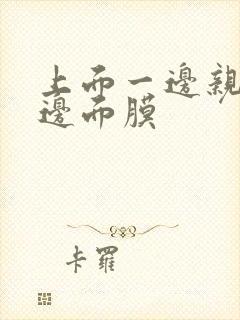 上而一邊親
邊而膜
卡羅